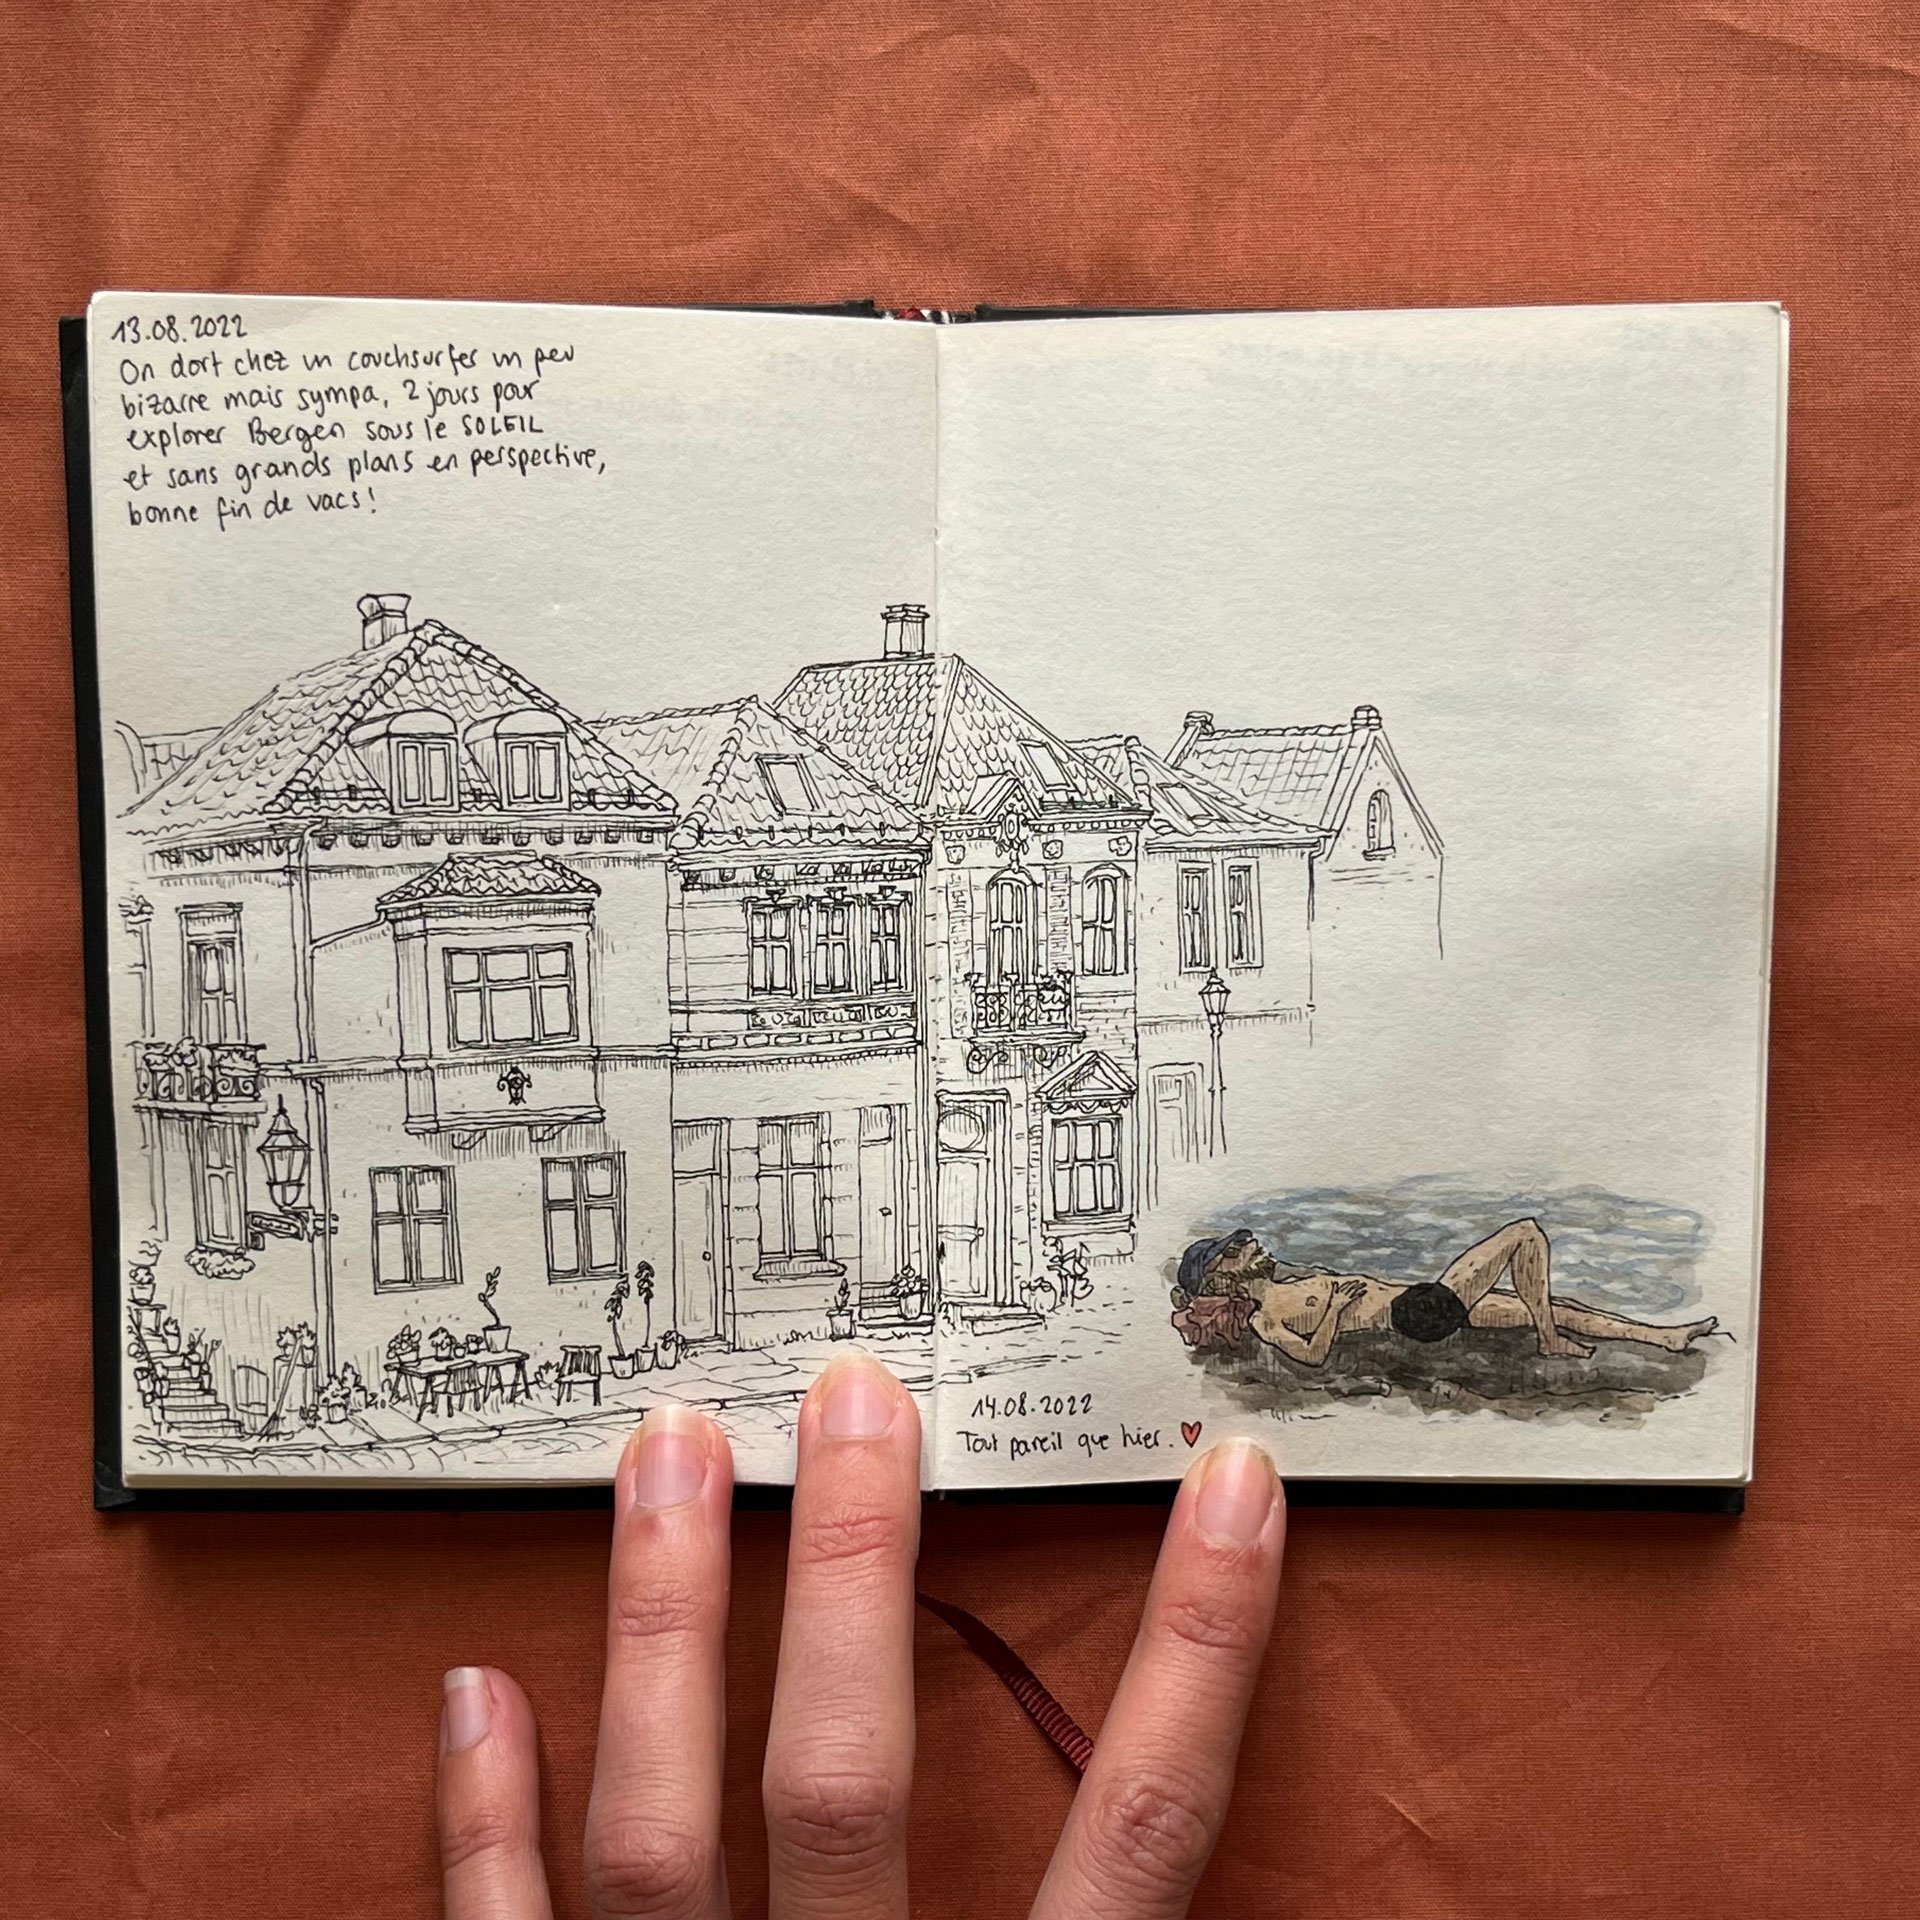 13.08.2022
On dort chez un couchsurfer un peu
bizarre mais sympa, 2 jours pour
explorer Bergen sous le SOLEIL
et sans grands plans en perspective,
bonne fin de vacs!
14.08.2022
Tout pareil que hier. ♥